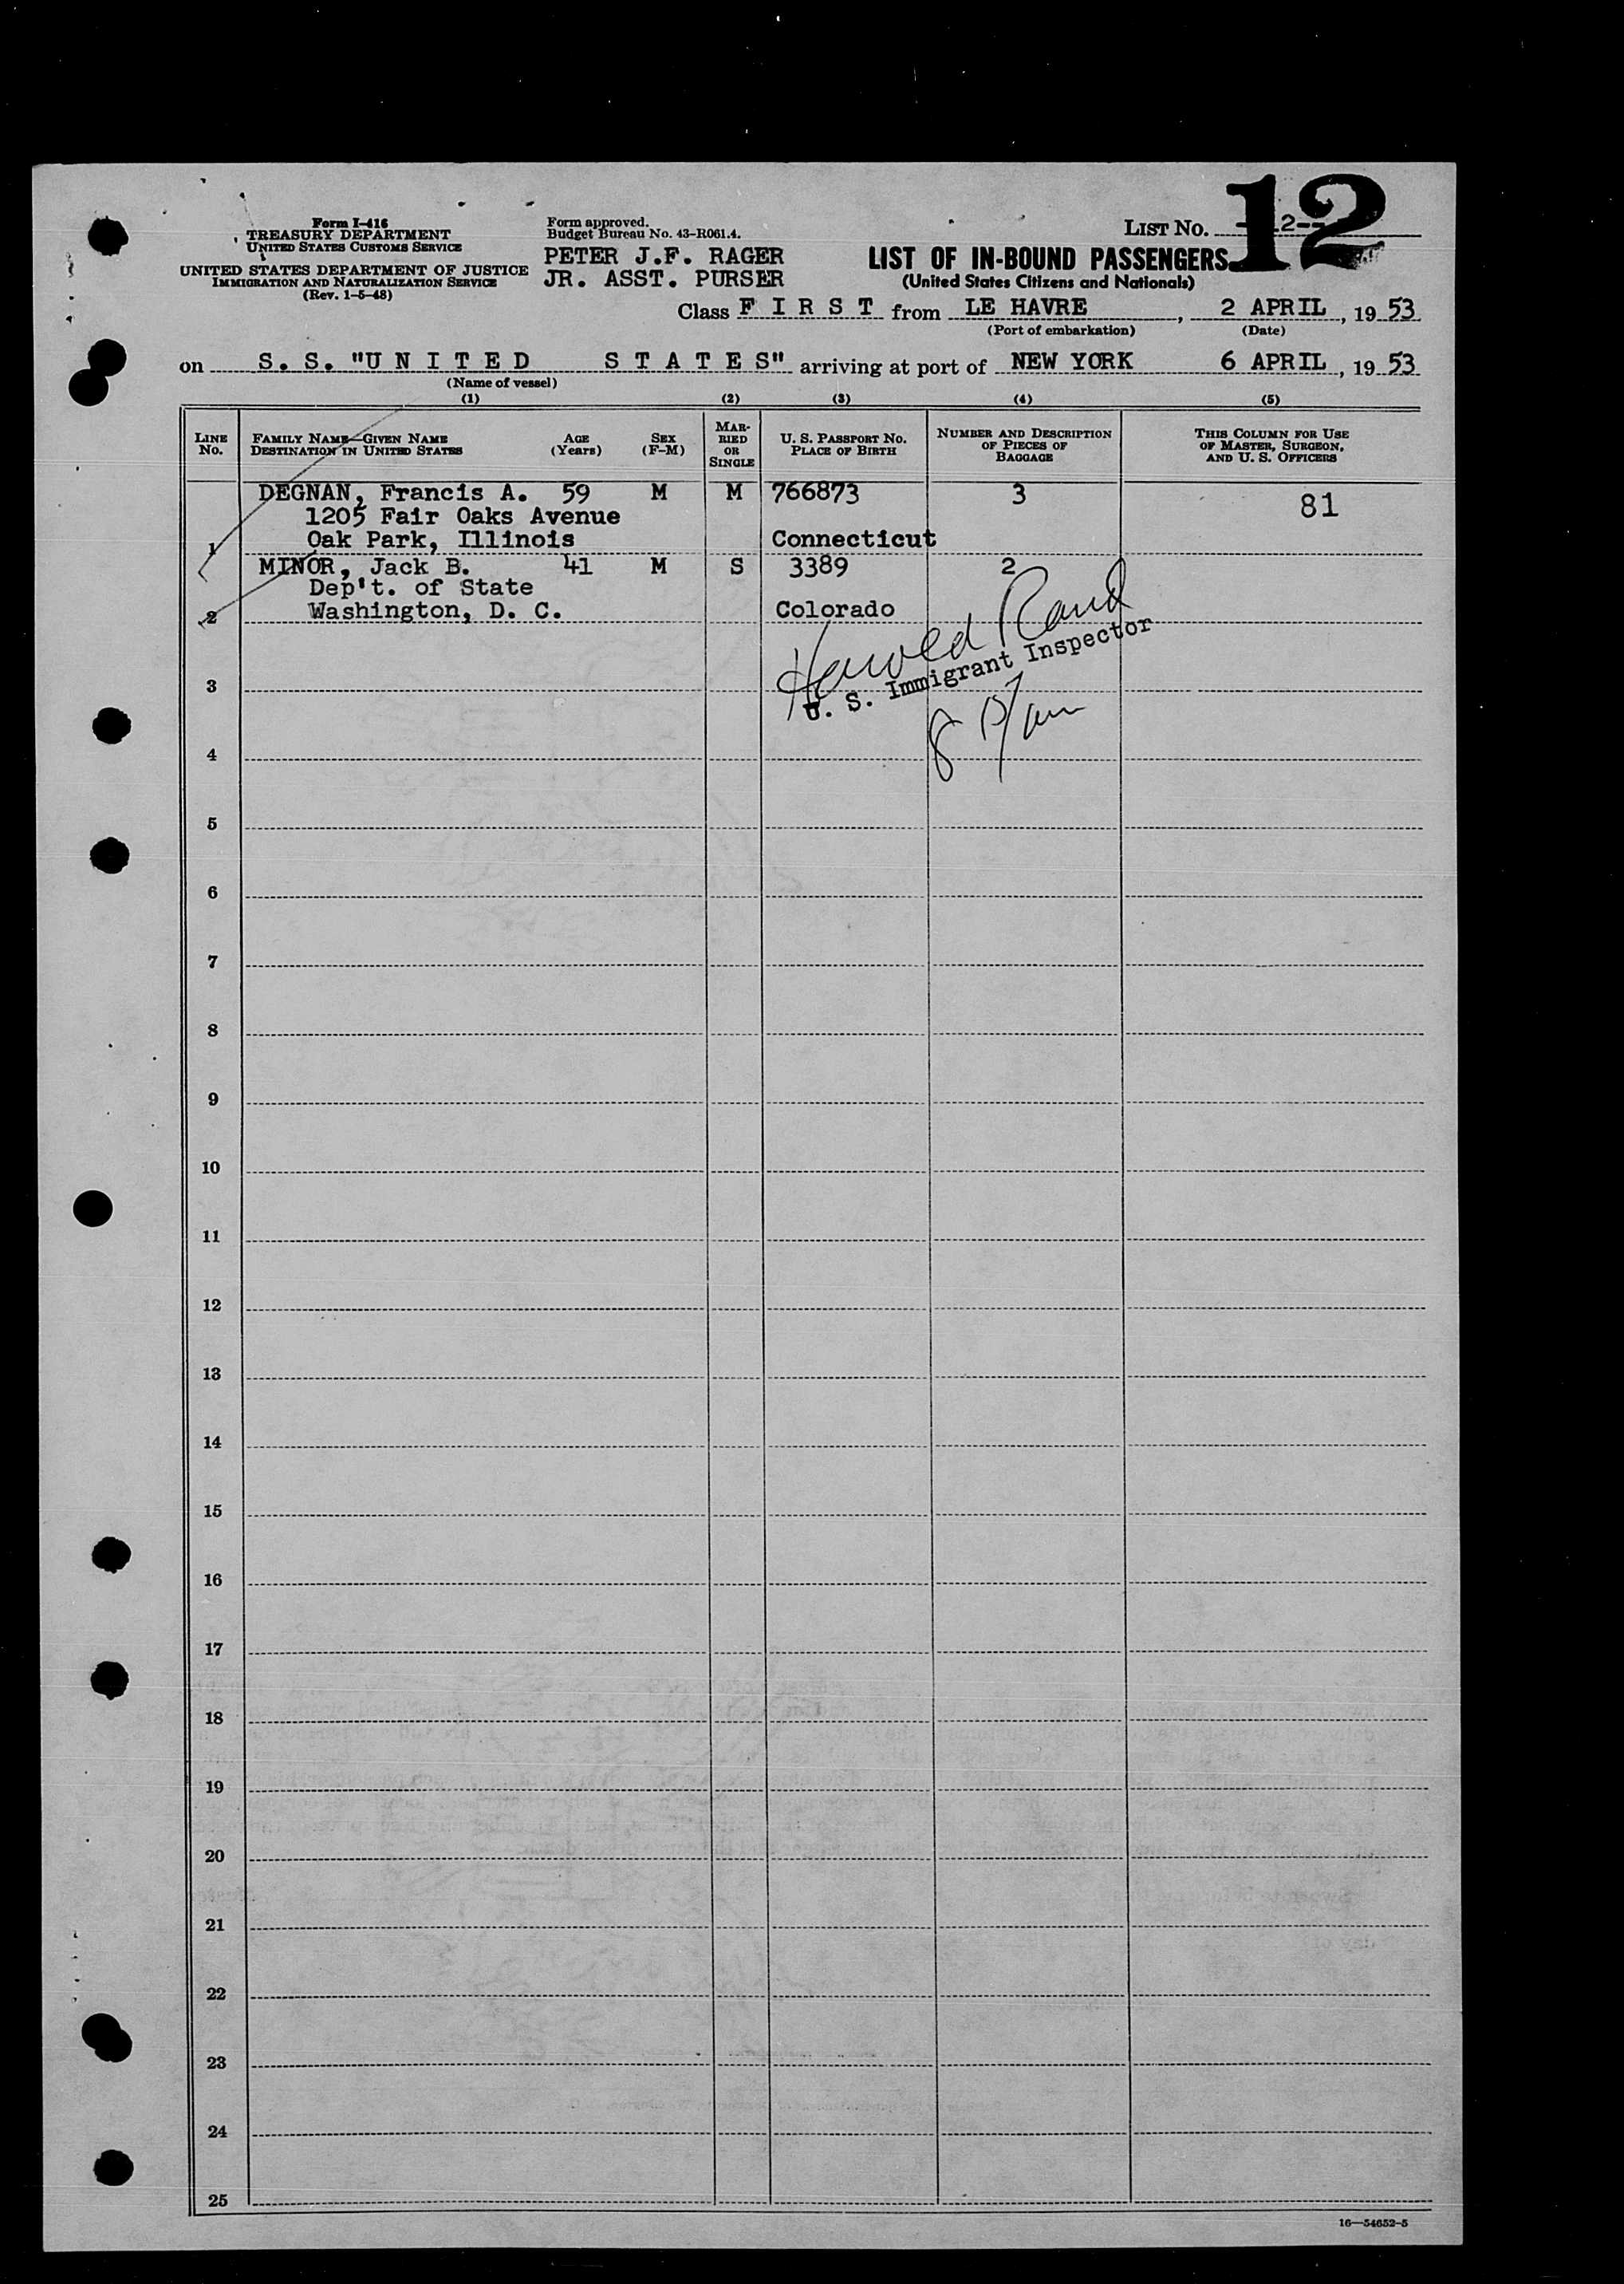 12
Form I-416
TREASURY DEPARTMENT
UNITED STATES CUSTOMS SERVICE
UNITED STATES DEPARTMENT OF JUSTICE
IMMIGRATION AND NATURALIZATION SERVICE
(Rev. 1-5-48)
Form approved.
Budget Bureau No. 43-R061.4.
PETER J.F. RAGER
JR. ASST. PURSER
LIST NO.
LIST OF IN-BOUND PASSENGERS
(United States Citizens and Nationals)
Class F I R S T from LE HAVRE, 2 APRIL, 19 53
(Port of embarkation) (Date)
on S. S. "U N I T E D S T A T E S" arriving at port of NEW YORK 6 APRIL, 19 53
(Name of vessel)
(1) (2) (3) (4) (5)
LINE NO. FAMILY NAME—GIVEN NAME DESTINATION IN UNITED STATES AGE (Years) SEX (F-M) MARRIED OR SINGLE U. S. PASSPORT NO. PLACE OF BIRTH NUMBER AND DESCRIPTION OF PIECES OF BAGGAGE THIS COLUMN FOR USE OF MASTER, SURGEON, AND U. S. OFFICERS
DEGNAN, Francis A. 59 M M 766873 3 81
1205 Fair Oaks Avenue
1 Oak Park, Illinois Connecticut
MINOR, Jack B. 41 M S 3389 2
Dep't. of State
2 Washington, D. C. Colorado
Harold Rand
U. S. Immigrant Inspector
3
4
5
6
7
8
9
10
11
12
13
14
15
16
17
18
19
20
21
22
23
24
25
16—54652-5